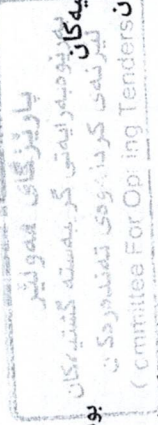 پارێزگای هەولێر
بەڕێوەبەرایەتی گرێبەستە گشتیەکان
لێژنەی کردنەوەی تەندەرەکان
(Committee For Opening Tenders
یەکان
ن
بو